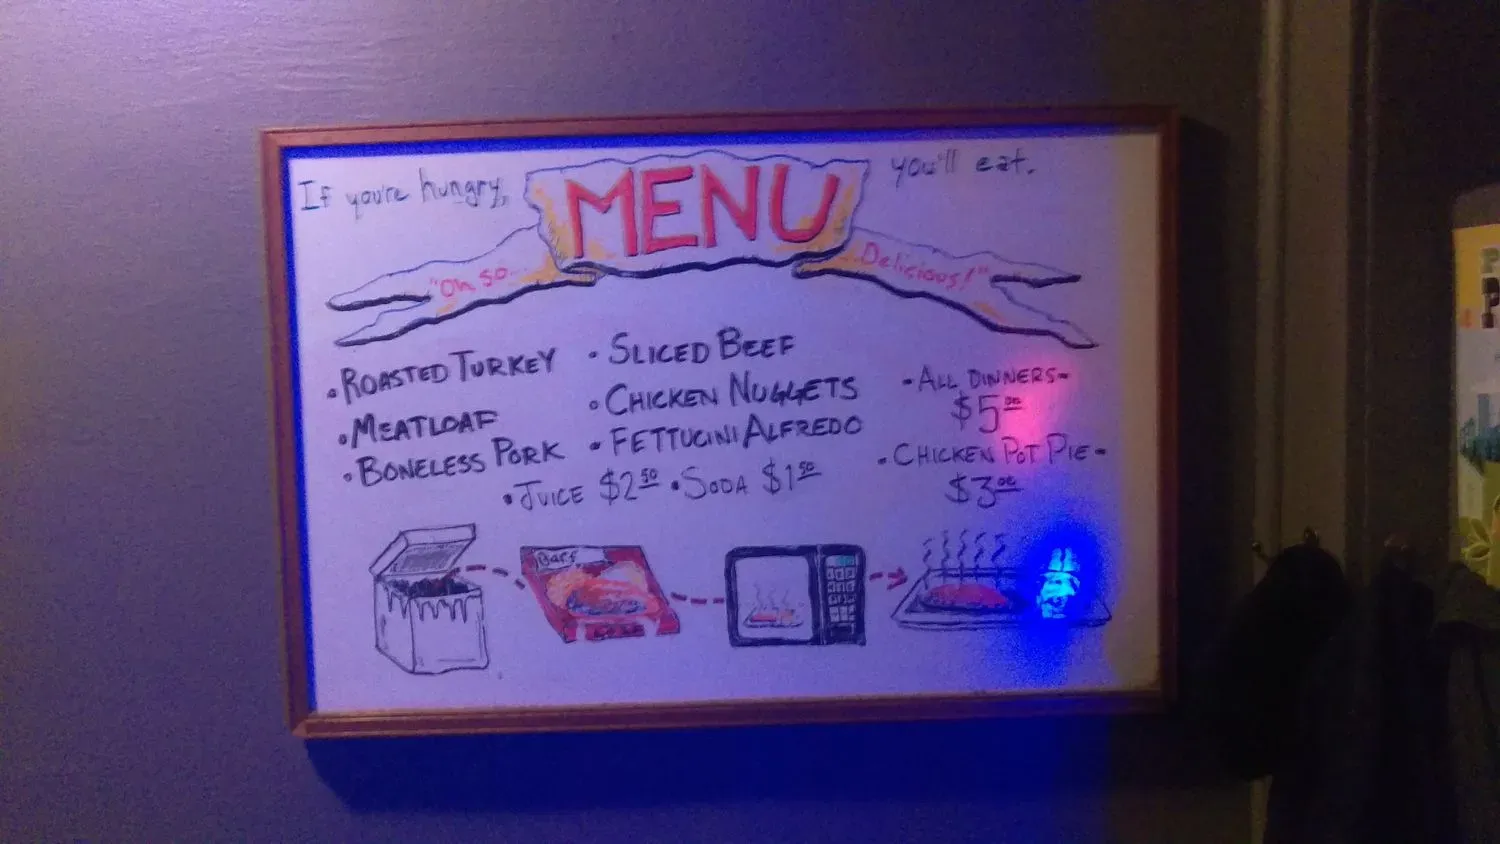 If you're hungry, MENU you'll eat.
"Oh so... ...Delicious!"
• ROASTED TURKEY
• MEATLOAF
• BONELESS PORK
• SLICED BEEF
• CHICKEN NUGGETS
• FETTUCINI ALFREDO
• JUICE $2.50 • SODA $1.50
- ALL DINNERS -
$5.00
- CHICKEN POT PIE -
$3.00